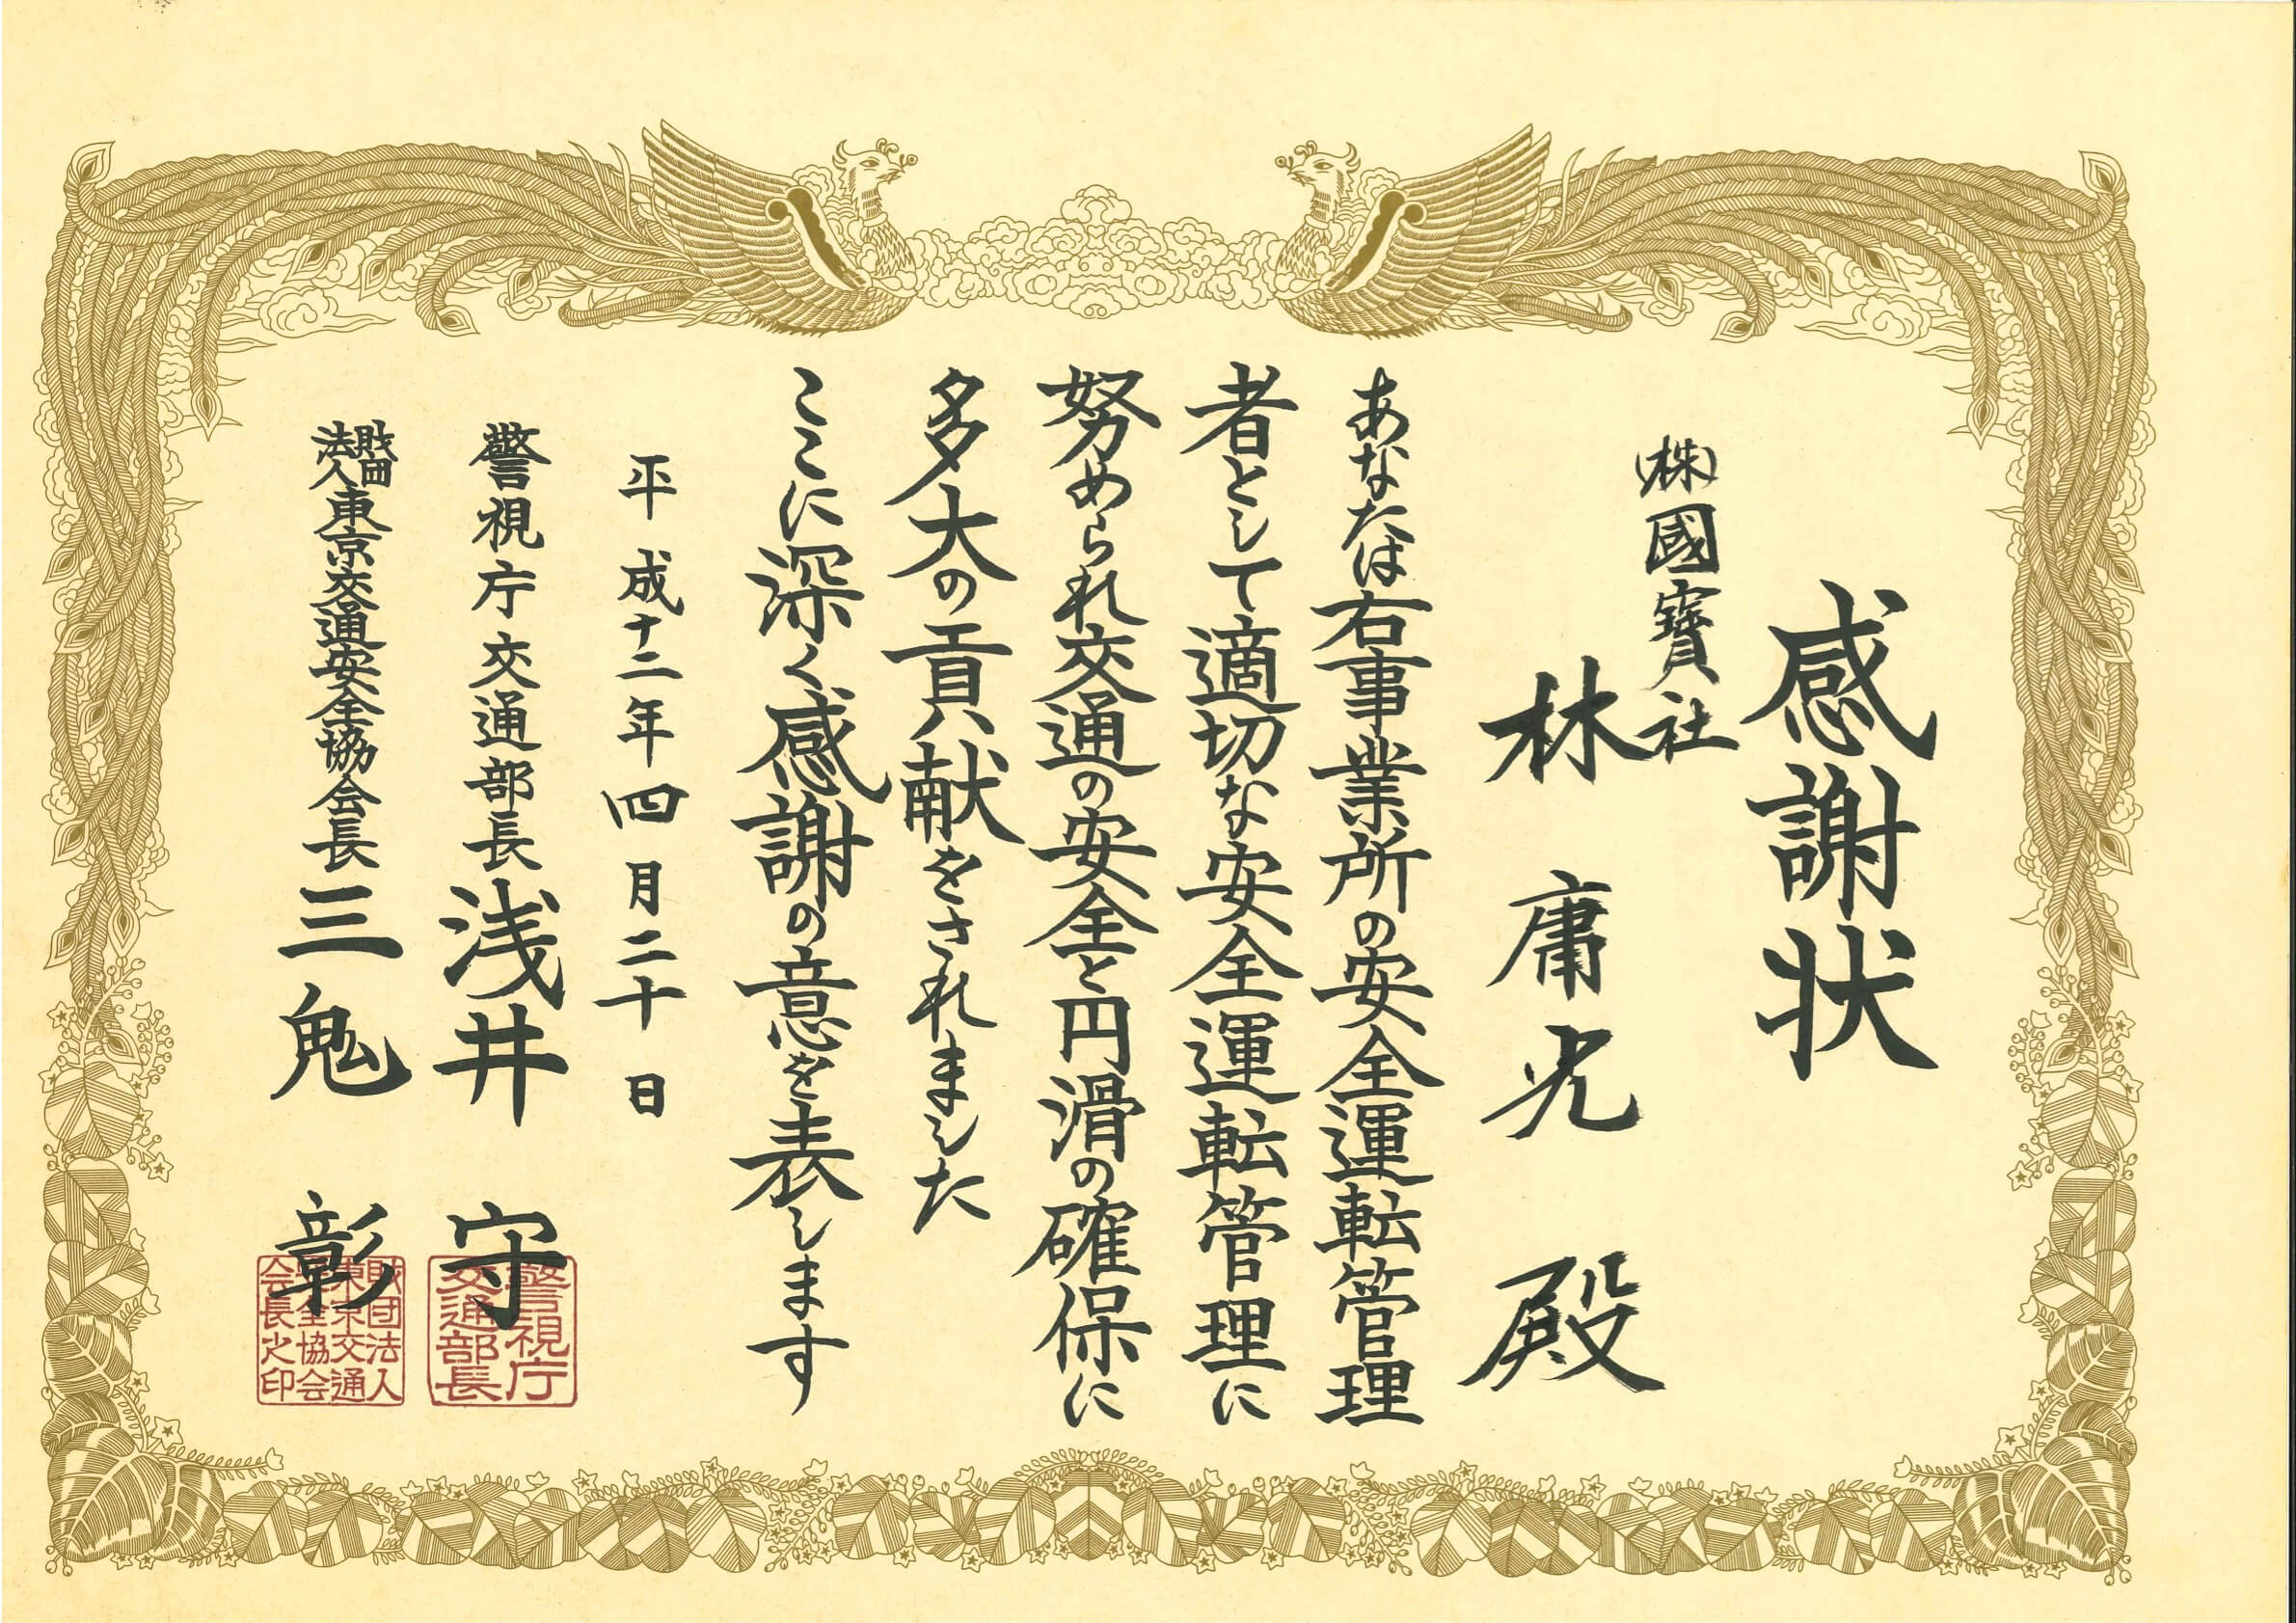 感謝状
(株)國寳社
林 庸光 殿
あなたは右事業所の安全運転管理
者として適切な安全運転管理に
努められ交通の安全と円滑の確保に
多大の貢献をされました
ここに深く感謝の意を表します
平成十二年四月二十日
警視庁交通部長 浅井 守
財団法人東京交通安全協会会長 三鬼 彰
警視庁
交通部長
財団法人
東京交通
安全協会
会長之印